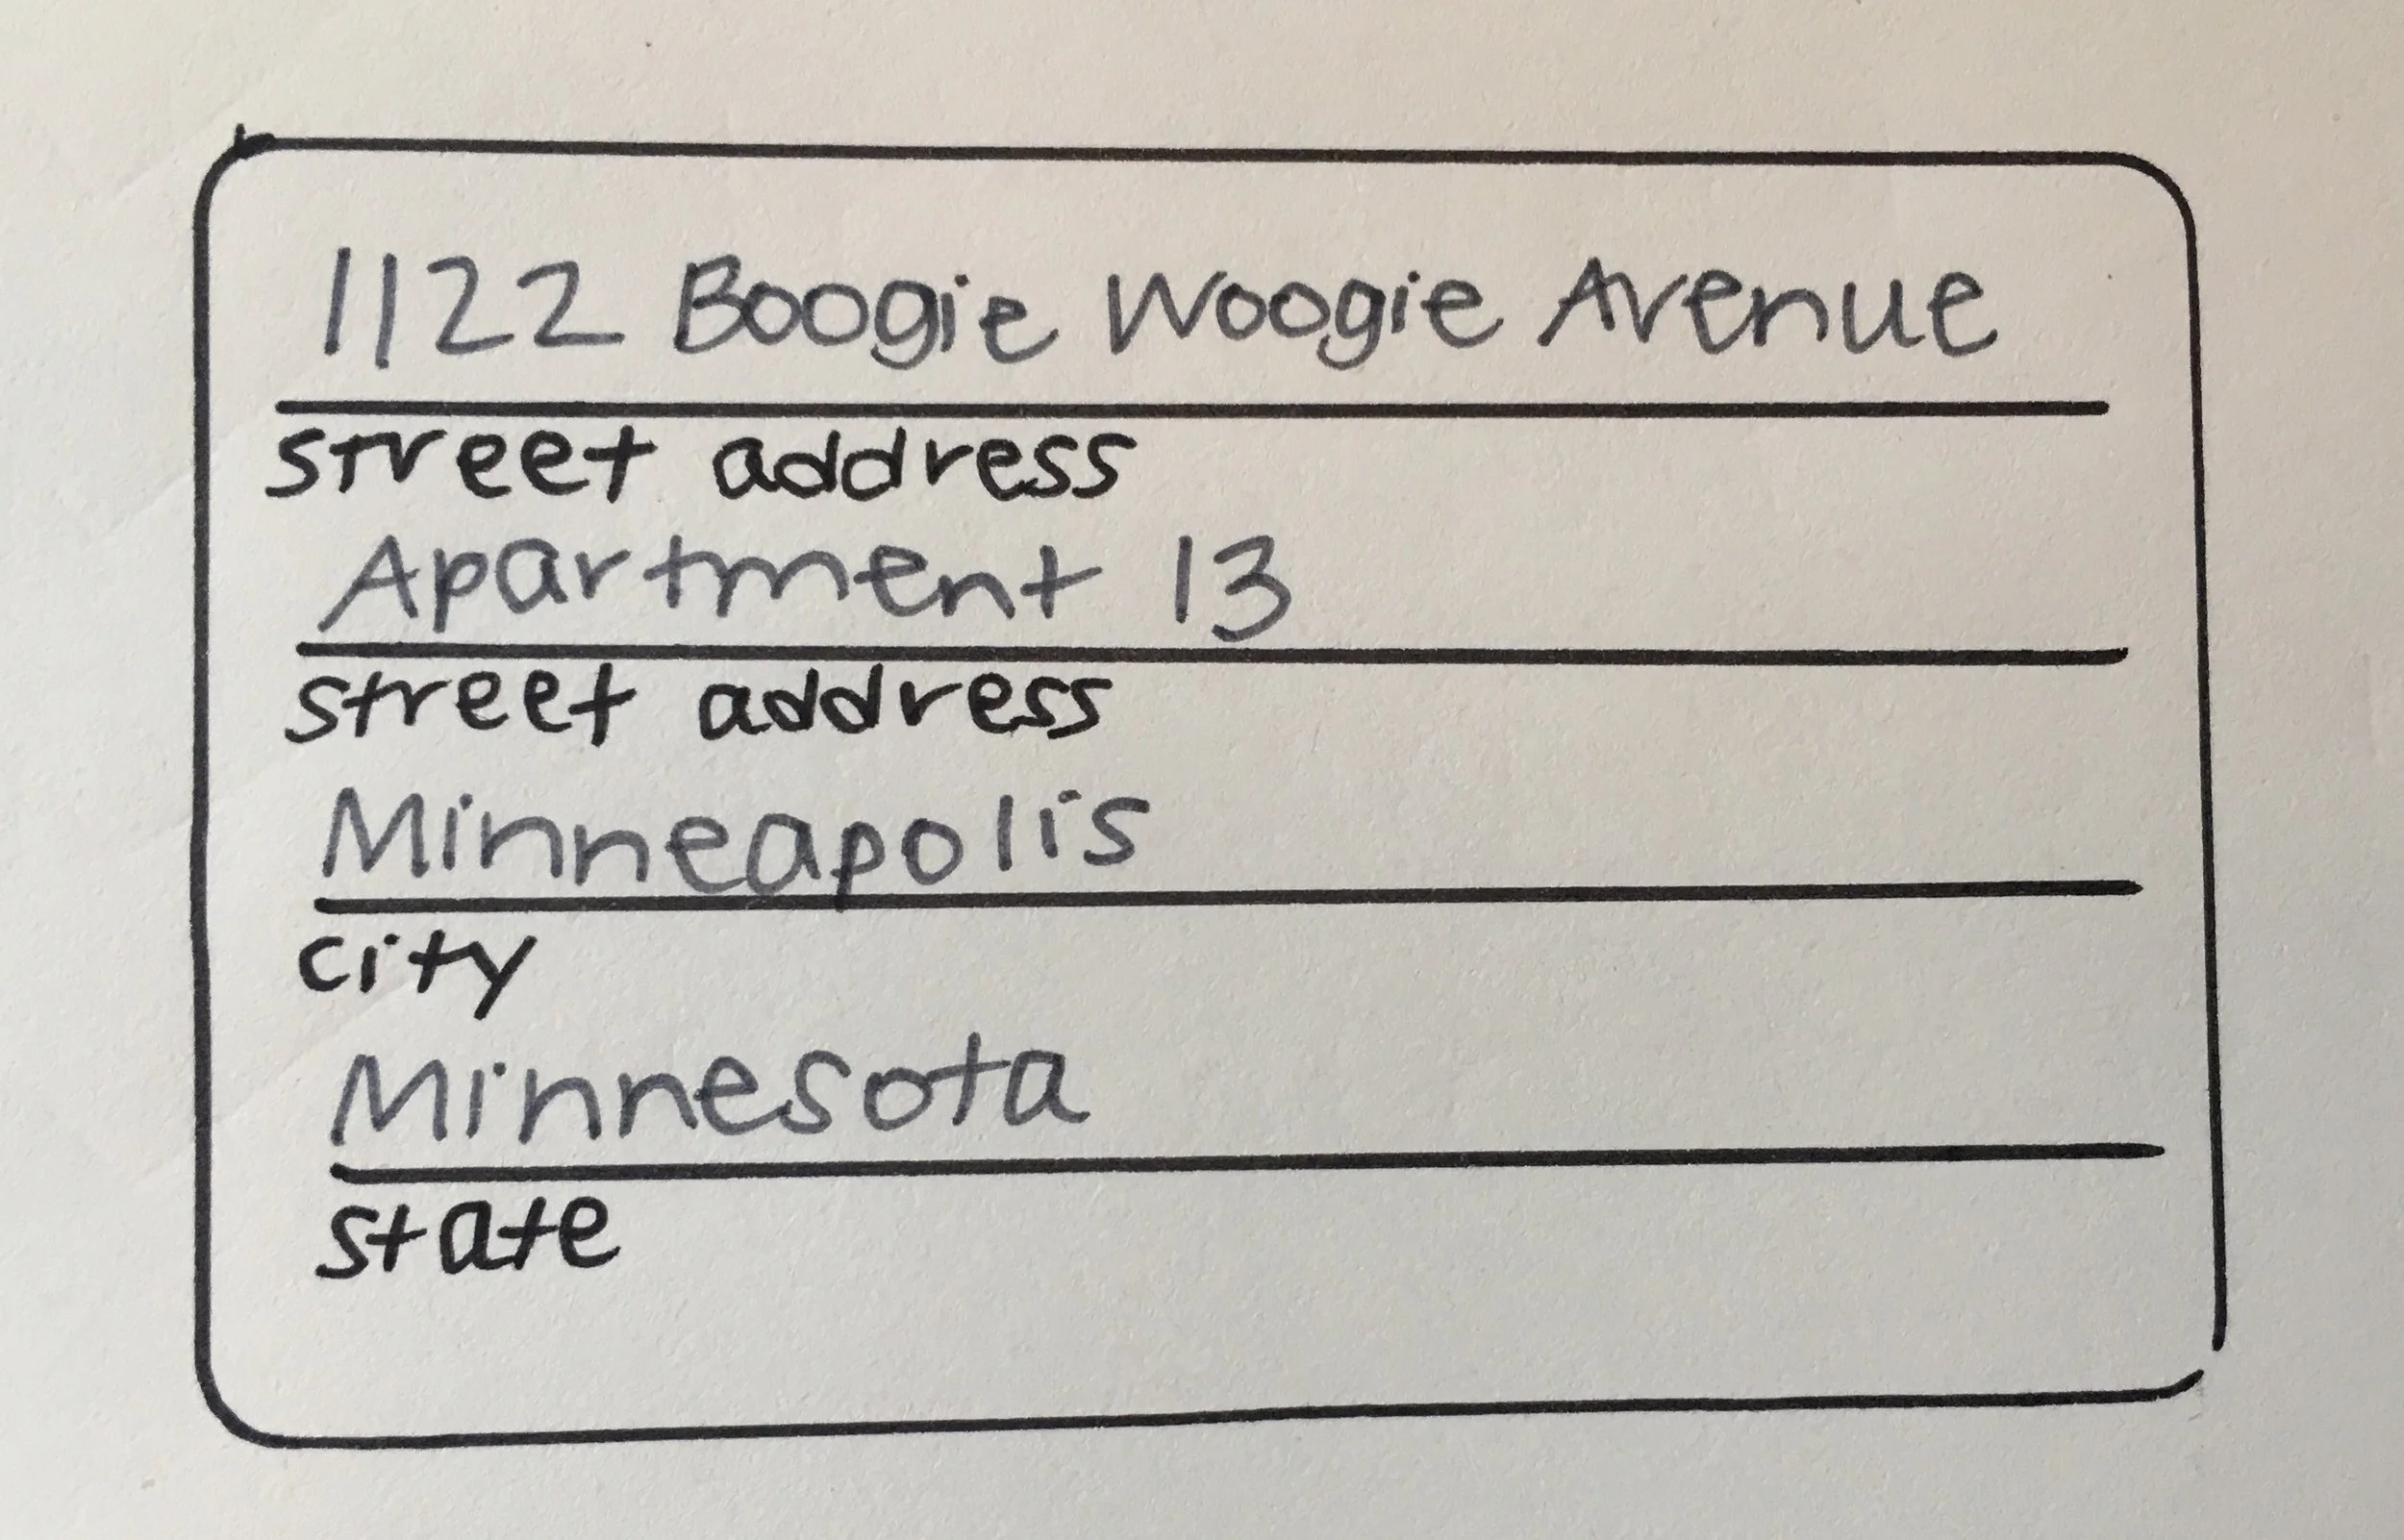 1122 Boogie Woogie Avenue
street address
Apartment 13
street address
Minneapolis
city
Minnesota
state